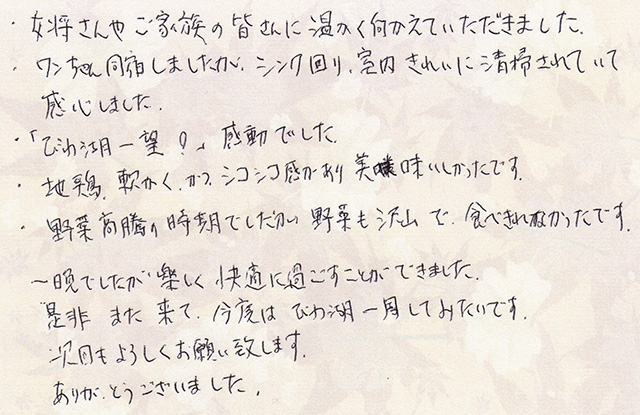 ・女将さんやご家族の皆さんに温かく向かえていただきました。
・ワンちゃん同宿しましたが、シンク回り、室内きれいに清掃されていて
感心しました。
・「びわ湖一望!」感動でした。
・地鶏、軟かく、かつシコシコ感があり美味いしかったです。
・野菜高騰の時期でしたが、野菜も沢山で、食べきれなかったです。
一晩でしたが楽しく快適に過ごすことができました。
是非また来て、今度はびわ湖一周してみたいです。
次回もよろしくお願い致します。
ありがとうございました。